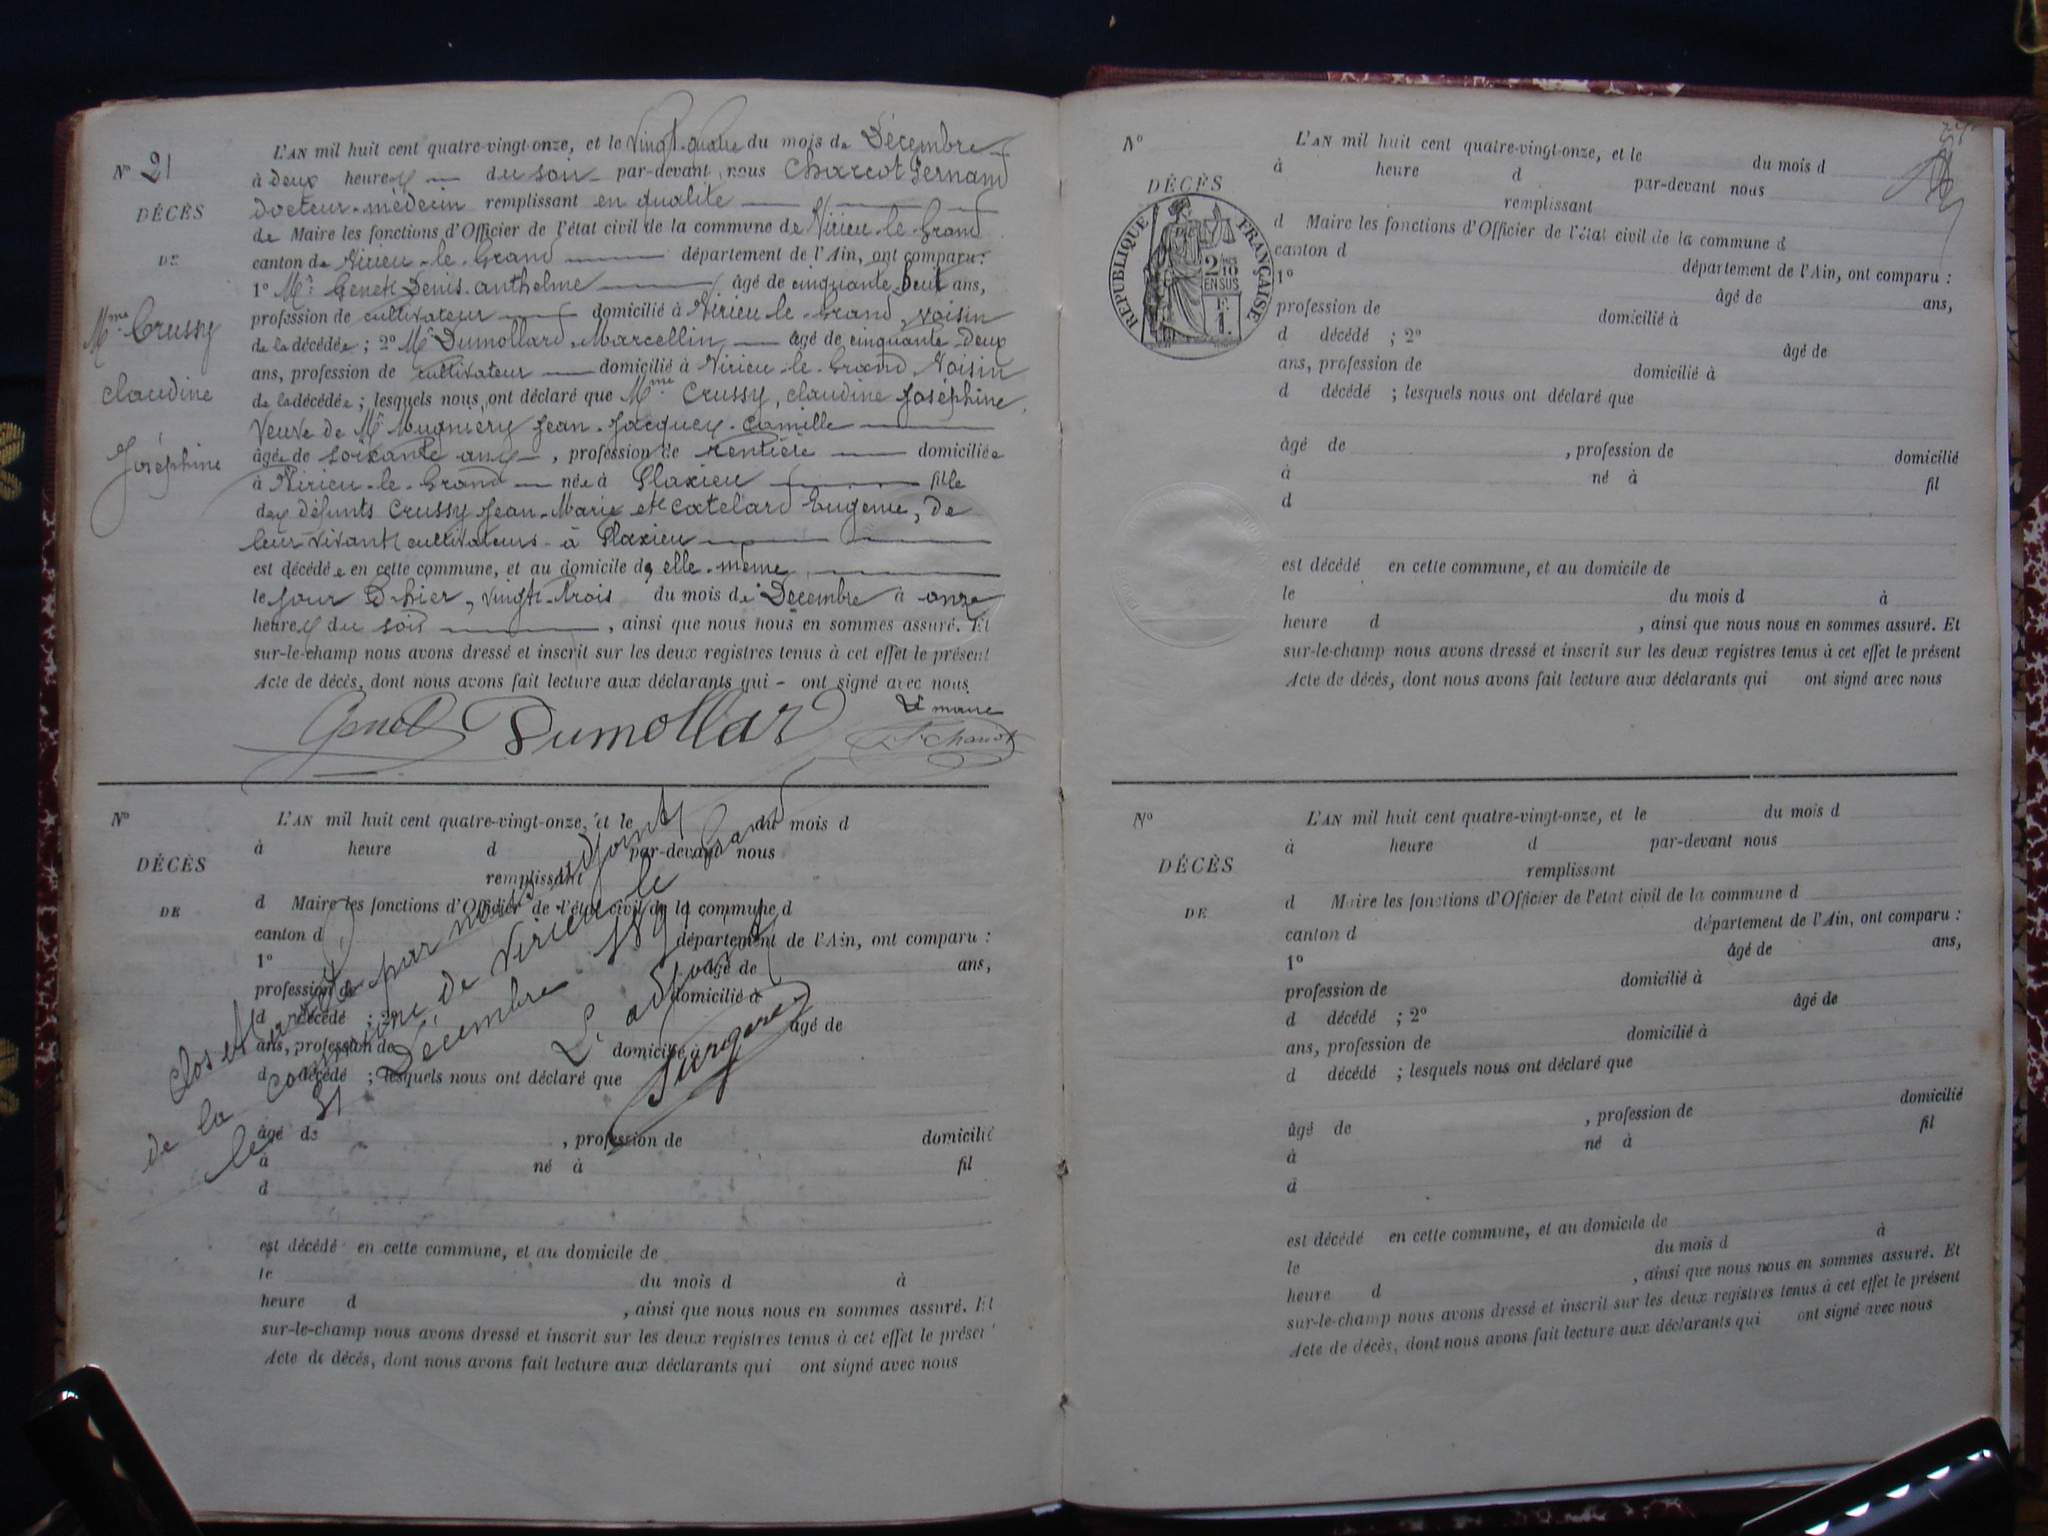 N° 21
DÉCÈS
DE
Mme Crussy
Claudine
Joséphine
L'AN mil huit cent quatre-vingt-onze, et le vingt-quatre du mois de Décembre
à deux heures du soir par-devant nous Charcot Fernand
Docteur-médecin remplissant en qualité
de Maire les fonctions d'Officier de l'état civil de la commune de Virieu-le-Grand
canton de Virieu-le-Grand département de l'Ain, ont comparu:
1° Mr Genet Denis-anthelme âgé de cinquante-deux ans,
profession de cultivateur domicilié à Virieu-le-Grand, voisin
de la décédée; 2° Mr Dumollard Marcellin âgé de cinquante-deux
ans, profession de cultivateur domicilié à Virieu-le-Grand, Voisin
de la décédée; lesquels nous ont déclaré que Mme Crussy, claudine Joséphine,
Veuve de Mr Mugniery Jean-Jacques-Camille
âgée de soixante ans, profession de rentière domiciliée
à Virieu-le-Grand née à Flaxieu fille
des défunts Crussy Jean-Marie et Catelard Eugénie, de
leur vivant cultivateurs à Flaxieu
est décédée en cette commune, et au domicile d'elle-même
le jour d'hier, vingt-trois du mois de Décembre à onze
heures du soir, ainsi que nous nous en sommes assuré. Et
sur-le-champ nous avons dressé et inscrit sur les deux registres tenus à cet effet le présent
Acte de décès, dont nous avons fait lecture aux déclarants qui - ont signé avec nous.
Genet Dumollard Le maire
F. Charcot
N°
DÉCÈS
DE
L'AN mil huit cent quatre-vingt-onze, et le du mois d
à heure d par-devant nous
remplissant
d Maire les fonctions d'Officier de l'état civil de la commune d
canton d département de l'Ain, ont comparu :
1° âgé de ans,
profession de domicilié à
d décédé ; 2° âgé de
ans, profession de domicilié à
d décédé ; lesquels nous ont déclaré que
âgé de , profession de domicilié
à né à fil
d
est décédé en cette commune, et au domicile de
le du mois d à
heure d , ainsi que nous nous en sommes assuré. Et
sur-le-champ nous avons dressé et inscrit sur les deux registres tenus à cet effet le présent
Acte de décès, dont nous avons fait lecture aux déclarants qui ont signé avec nous
Clos et arrêté par nous adjoint
de la commune de Virieu le Grand
le 31 Décembre 1891
L'adjoint
N°
DÉCÈS
RÉPUBLIQUE FRANÇAISE
2/10 EN SUS
F.
1.
L'AN mil huit cent quatre-vingt-onze, et le du mois d
à heure d par-devant nous
remplissant
d Maire les fonctions d'Officier de l'état civil de la commune d
canton d département de l'Ain, ont comparu :
1° âgé de ans,
profession de domicilié à
d décédé ; 2° âgé de
ans, profession de domicilié à
d décédé ; lesquels nous ont déclaré que
âgé de , profession de domicilié
à né à fil
d
est décédé en cette commune, et au domicile de
le du mois d à
heure d , ainsi que nous nous en sommes assuré. Et
sur-le-champ nous avons dressé et inscrit sur les deux registres tenus à cet effet le présent
Acte de décès, dont nous avons fait lecture aux déclarants qui ont signé avec nous
N°
DÉCÈS
DE
L'AN mil huit cent quatre-vingt-onze, et le du mois d
à heure d par-devant nous
remplissant
d Maire les fonctions d'Officier de l'état civil de la commune d
canton d département de l'Ain, ont comparu :
1° âgé de ans,
profession de domicilié à
d décédé ; 2° âgé de
ans, profession de domicilié à
d décédé ; lesquels nous ont déclaré que
âgé de , profession de domicilié
à né à fil
d
est décédé en cette commune, et au domicile de
le du mois d à
heure d , ainsi que nous nous en sommes assuré. Et
sur-le-champ nous avons dressé et inscrit sur les deux registres tenus à cet effet le présent
Acte de décès, dont nous avons fait lecture aux déclarants qui ont signé avec nous